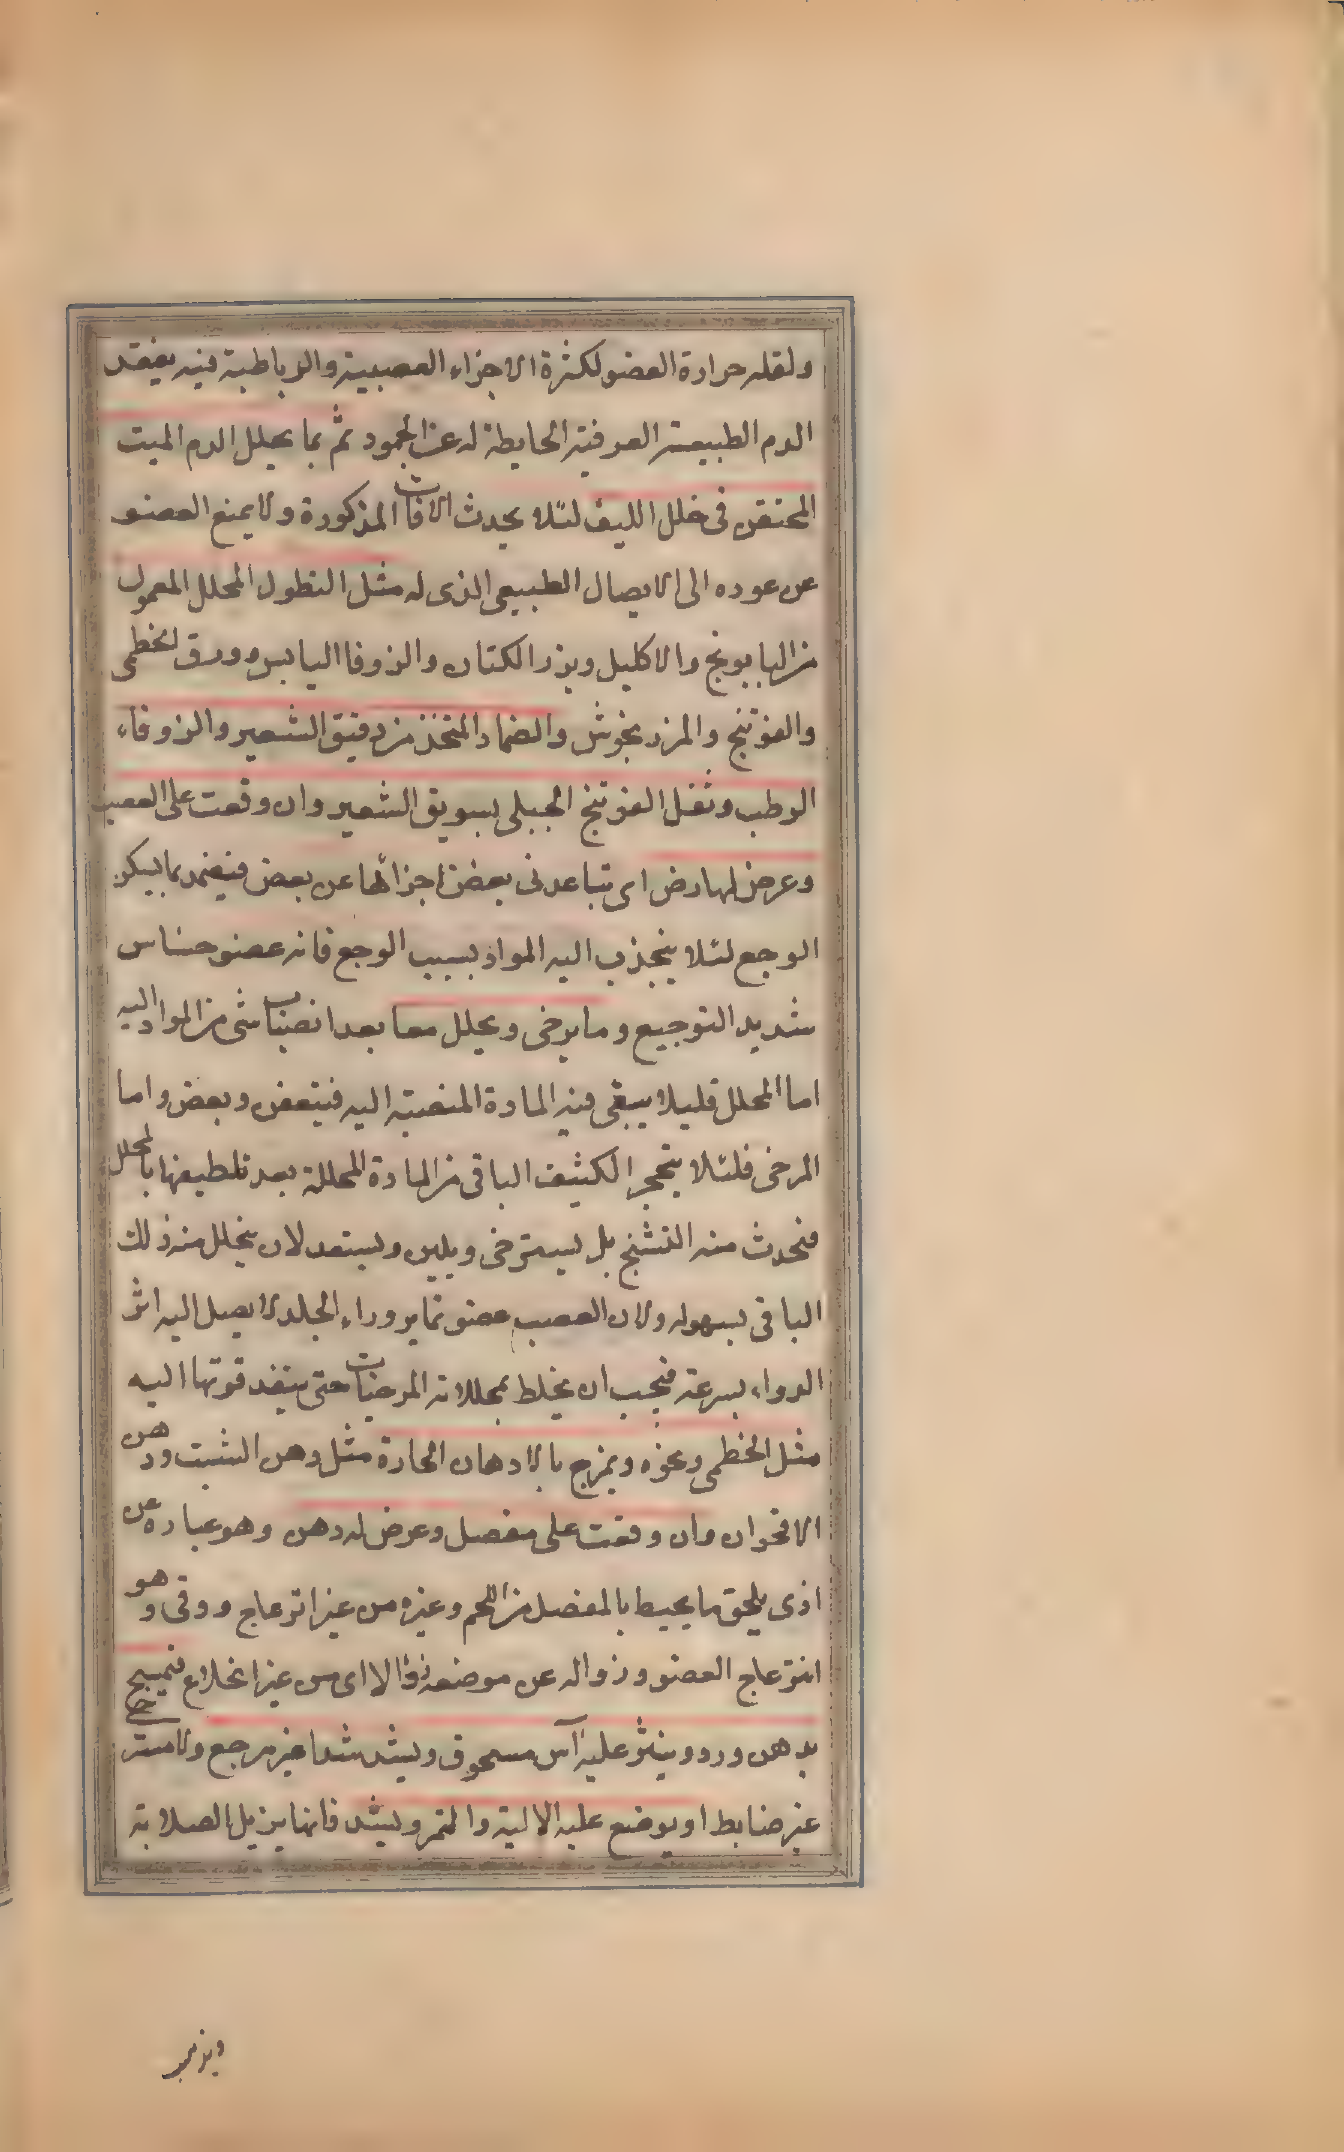 ولقله حرارة العضو لكثرة الاجزاء العصبية والرباطية فيه يفقد
الدم الطبيعته العرفية الحايطة له عن الجمود ثم بما يحلل الدم الميت
المحتقن فى خلل الليف لئلا يحدث الافات المذكورة ولا يمنع العضو
عن عوده الى الايصال الطبيعى الذى له مثل النطول المحلل المعمول
من البابونج والاكليل وبزر الكتان والزوفا اليابس وورق الخطمى
والفوتنج والمرزنجوش والضماد المتخذ من دقيق الشعير والزوفاء
الرطب وثفل الفوتنج الجبلى بسويق الشعير وان وقعت على العصب
وعرض لها رض اى تباعد فى بعض اجزائها عن بعض فيضمد بما يسكن
الوجع لئلا ينجذب اليه المواد بسبب الوجع فانه عضو حساس
شديد التوجيع وما يرخى ويحلل معا بعد انصباب شى من المواد اليه
اما المحلل قليلا يبقى فيه المادة المنصبة اليه فيتعفن وبعض واما
المرخى فلئلا يتحجر الكثيف الباقى من المادة المحللة بعد تلطيفها بالمحلل
فيحدث منه التشنج بل يسترخى ويلين ويستعد لان يتحلل منه ذلك
الباقى بسهوله ولان العصب عضو غاير وراء الجلد لا يصل اليه اثر
الدواء بسرعة فيجب ان يخلط بمحللاته المرخيات حتى ينفذ قوتها اليه
مثل الخطمى ونحوه ويمزج بالادهان الحارة مثل دهن الشبت ودهن
الاقحوان وان وقعت على مفصل وعرض له دهن وهو عباره عن
اذى يلحق ما يحيط بالمفصل من اللحم وغيره من غير انزعاج ووثى وهو
انزعاج العضو وزواله عن موضعه زوالا اى من غير انخلاع فيمسح
بدهن ورد وينثر عليه آس مسحوق ويشد شدا غير مرجع ولا مستر
غير ضابط او يوضع عليه الالية والتمر ويشد فانها يزيل الصلابة